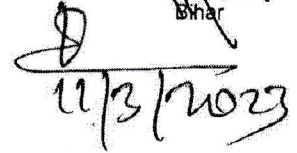 Bihar
11/3/2023